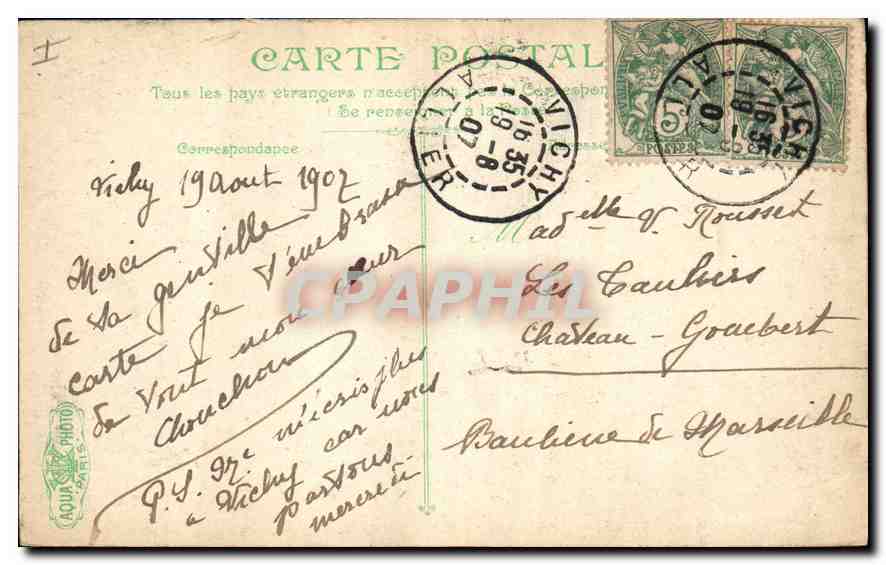 I
CARTE POSTALE
Tous les pays étrangers n'acceptent pas la Correspondance
Se renseigner à la Poste
Correspondance
VICHY
16 35
19 - 8
07
ALLIER
VICHY
16 35
19 - 8
07
ALLIER
5c
POSTES
Vichy 19 Aout 1907
Merci
de ta gentille
carte je t'embrasse
de tout mon cœur
Chouchou
P.S. Ne m'écris plus
à Vichy car nous
partons
mercredi
Madelle V. Rousset
Les
Chateau - Gombert
Banlieue de Marseille
AQUA PHOTO
PARIS
CPAPHIL